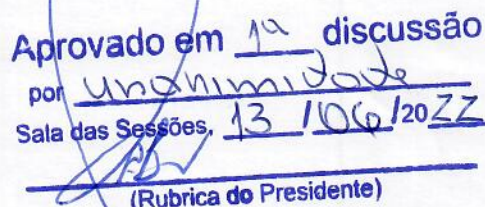 Aprovado em 1ª discussão
por unanimidade
Sala das Sessões, 13 /06/2022
(Rubrica do Presidente)